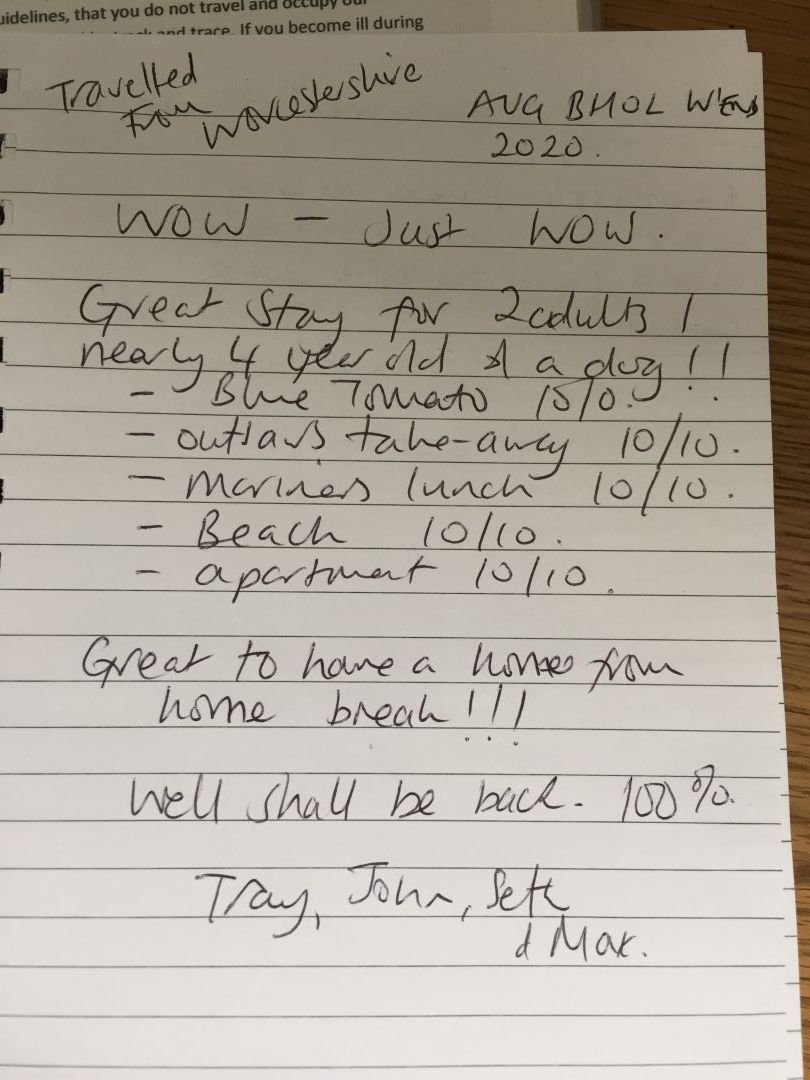 uidelines, that you do not travel and occupy our
and trace. If you become ill during
Travelled
From Worcestershire
AUG BHOL W'END
2020.
WOW - Just WOW.
Great stay for 2 adults 1
nearly 4 year old & a dog!!
- Blue Tomato 10/10.
- outlaws take-away 10/10.
- Mariners lunch 10/10.
- Beach 10/10.
- apartment 10/10.
Great to have a home from
home break!!!
Well shall be back. 100%.
Tray, John, Seth
& Max.